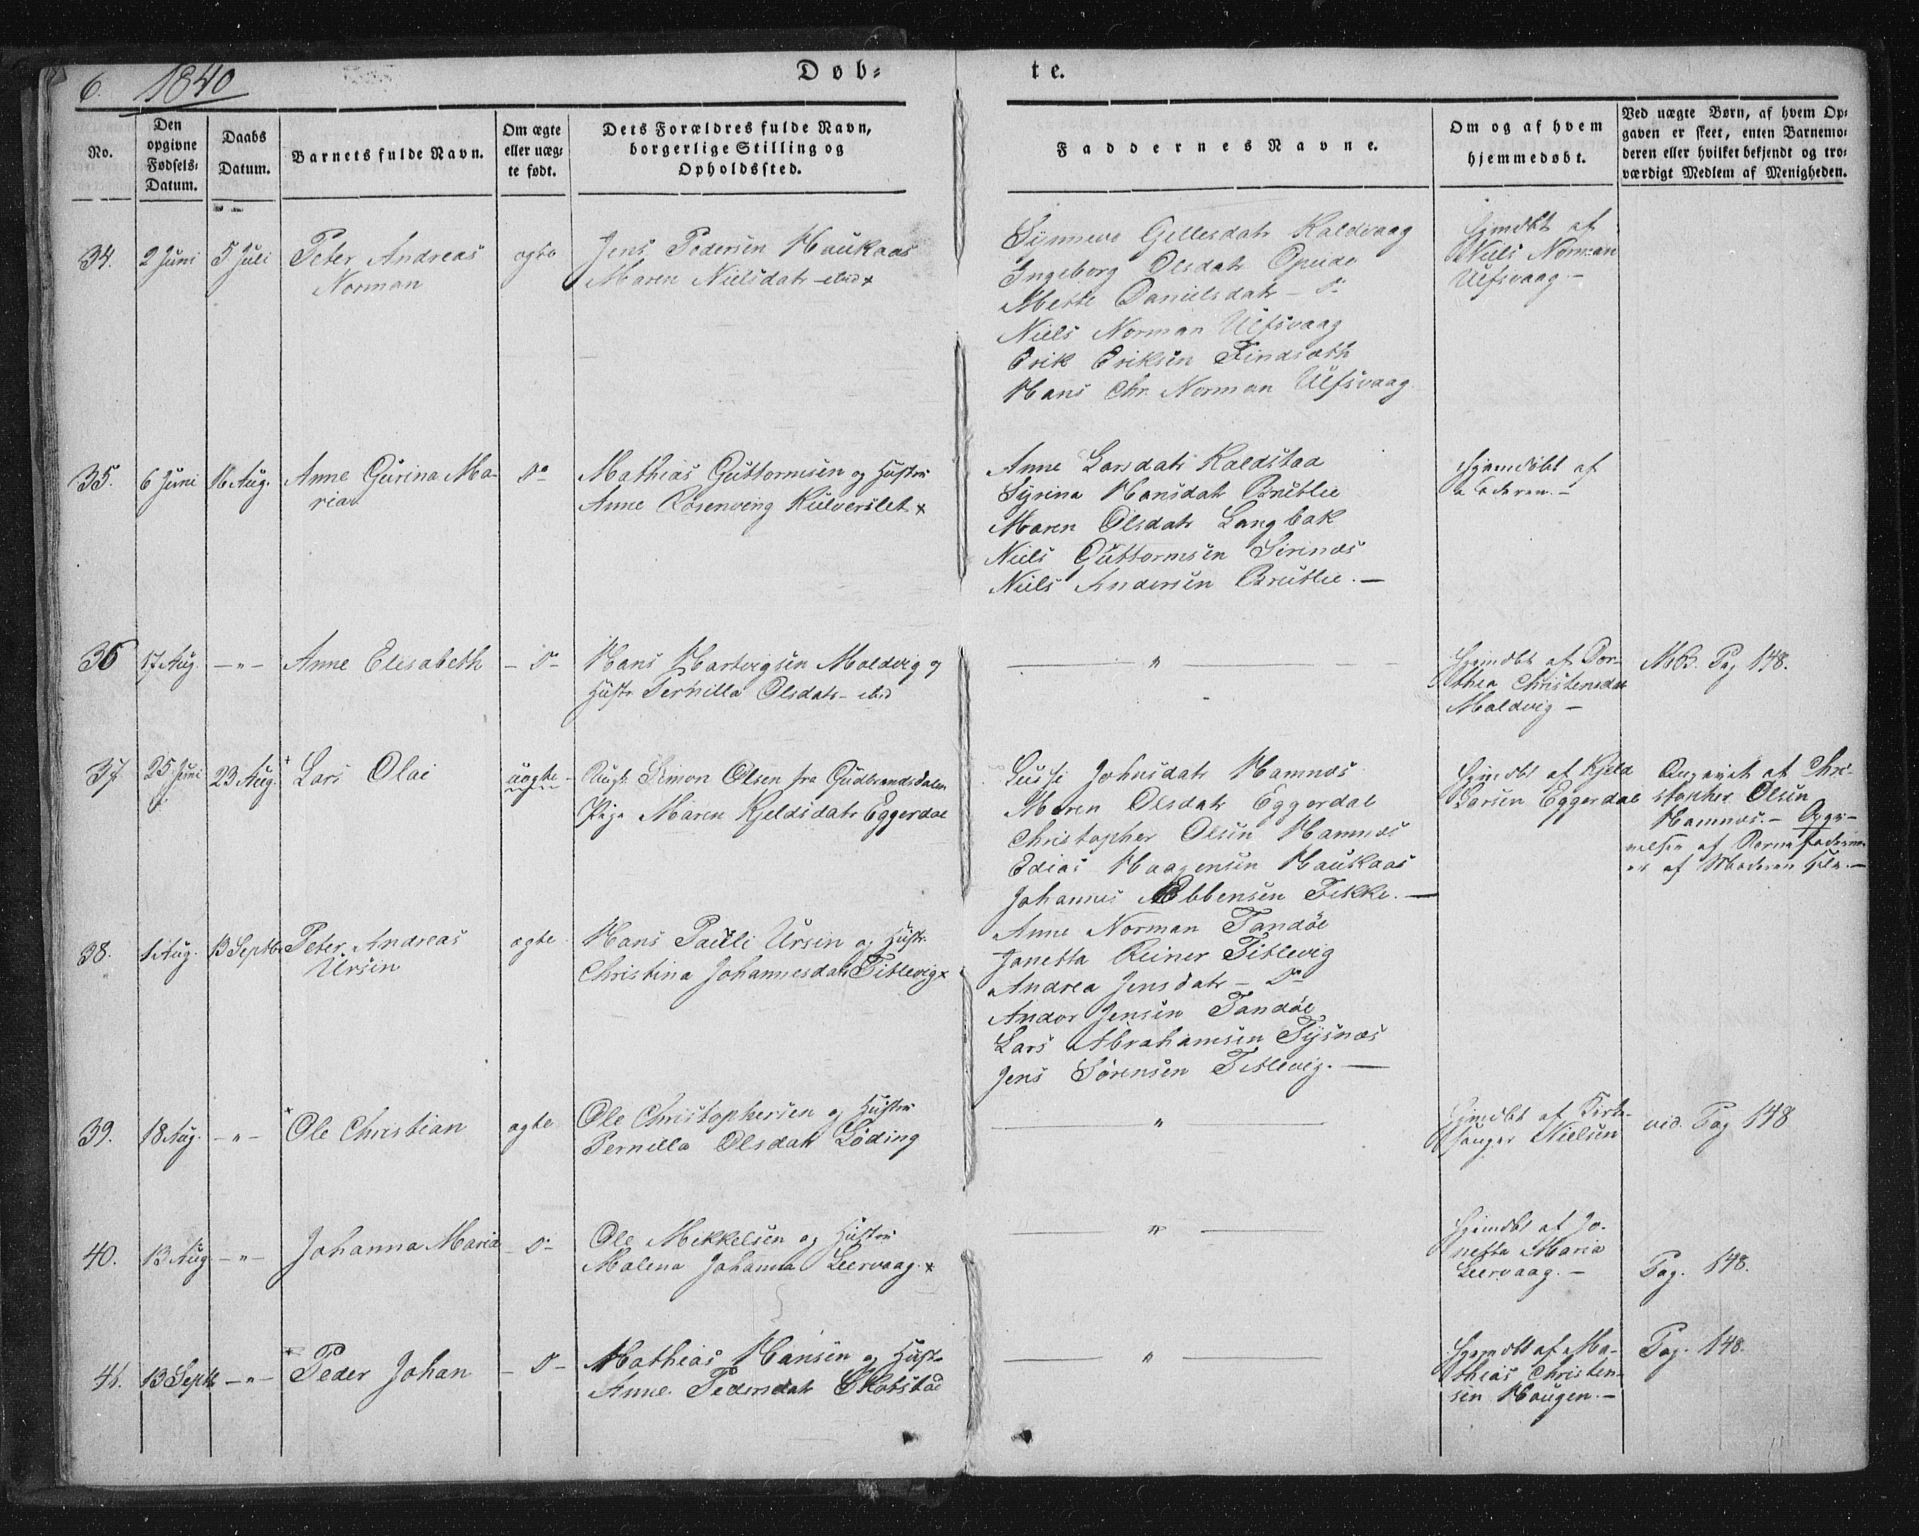 6. 1840
Døb-
te.
No.
Den opgivne Fødsels-Datum.
Daabs Datum.
Barnets fulde Navn.
Om ægte eller uægte født.
Dets Forældres fulde Navn, borgerlige Stilling og Opholdssted.
Faddernes Navne.
Om og af hvem hjemmedøbt.
Ved uægte Børn, af hvem Opgaven er skeet, enten Barnemoderen eller hvilket bekjendt og troværdigt Medlem af Menigheden.
34. 2 Juni 5 Juli Peter Andreas
Norman
ægte
Jens Pedersen Haukaas
Maren Nielsdatr
Synneve Gellesdatr Kaldvaag
Ingeborg Olsdatr Opeide
Mette Danielsdatr – Do
Niels Norman Ulfsvaag
Erik Eriksen Findsæth
Hans Chr. Norman Ulfsvaag
Hjmdbt af
Niels Norman
Ulfsvaag. –
35. 6 Juni 16 Aug. Anne Gurina Ma-
ria
Do
Mathias Guttormsen og Hustru
Anne Rosenving Kulverslet x
Anne Larsdatr Kaldstad
Syrina Hansdatr Brutlie
Maren Olsdatr Langbak
Niels Guttormsen Sirinæs
Niels Andersen Brutlie. –
Hjemdøbt af
Faderen. –
36 17 Aug. – " – Anne Elisabeth
– Do
Hans Hartvigsen Maldvig og
Hustr Pernilla Olsdatr – ibid
"
Hjemdbt af Dor-
thea Christensdatr
Maldvig –
Pag 148.
37 25 Juni 23 Aug. Lars Olai
uægte
Ungk. Simon Olsen fra Gudbrandsdalen
Pige Maren Kjeldsdatr Eggerdal
Johnsdatr Hamnæs
Maren Olsdatr Eggerdal
Christopher Olsen Hamnæs
Edias Haagensen Haukaas
Johannes Ebbensen Fikke. –
Hjemdbt af Kjeld
Larsen Eggerdal
Angivet af Chri-
stopher Olsen
Hamnæs. – Opgi-
velsen af Barnefaderen
er af Moderen selv. –
38. 1 Aug. 13 Septbr Peter Andreas
Ursin
ægte
Hans Pauli Ursin og Hustr.
Christina Johannesdatr Fitlevig x
Anne Norman Tandøe
Janetta Reiner Fitlevig
Andrea Jensdatr – Do
Andor Jensen Tandøe
Lars Abrahamsen Tysnæs
Jens Sørensen Fitlevig. –
39. 18 Aug. – " – Ole Christian
ægte
Ole Christophersen og Hustru
Pernilla Olsdatr Løding
"
Hjmdbt af Kirke-
sanger Nielsen
vid. Pag 148
40. 13 Aug – " – Johanna Maria
– Do –
Ole Mikkelsen og Hustru
Malena Johanna Leervaag. x
"
Hjemdbt af Jo-
netta Maria
Leervaag. –
Pag. 148.
41. 13 Septb – " – Peder Johan
– Do –
Mathias Hansen og Hustr
Anne Pedersdatr Skotstad
"
Hjemdbt af Ma-
thias Christen-
sen Haugen. –
Pag. 148.